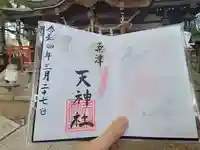 粟津
天神社
令和四年三月二十七日